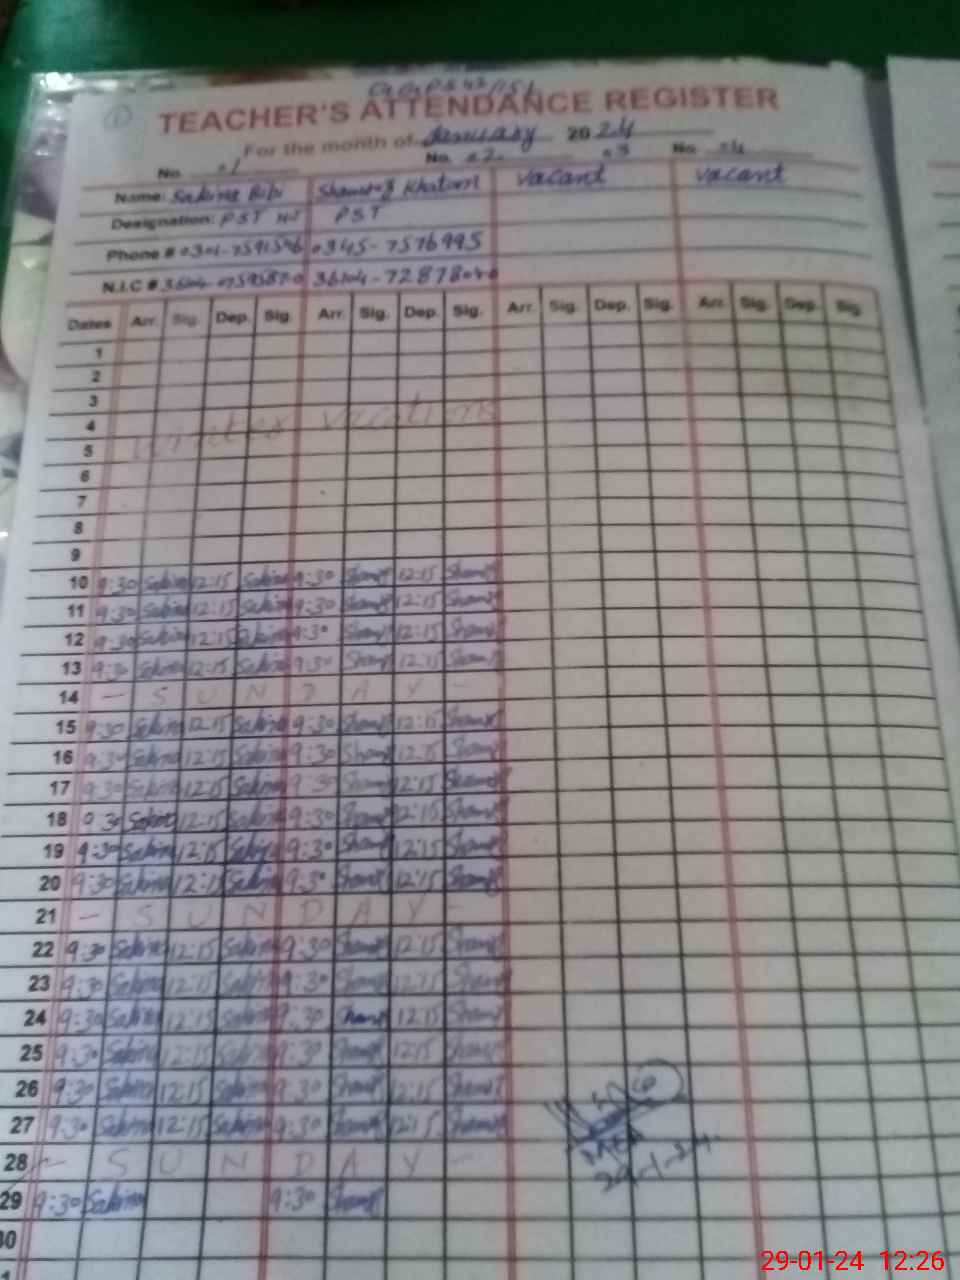 TEACHER'S ATTENDANCE REGISTER
For the month of January 2024
No. 1 No. 2 3 No. 4
Name: Sakina Bibi Shamshad Khatoon vacant vacant
Designation: PST PST
Phone # 0301-7591596 0345-7576995
N.I.C #
Dates Arr. Sig. Dep. Sig. Arr. Sig. Dep. Sig. Arr. Sig. Dep. Sig. Arr. Sig. Dep. Sig.
1
2
3
4 winter vacations
5
6
7
8
9
10 9:30 Sakina 12:15 Sakina 9:30 Sham 12:15 Sham
11 9:30 Sakina 12:15 Sakina 9:30 Sham 12:15 Sham
12 9:30 Sakina 12:15 Sakina 9:30 Sham 12:15 Sham
13 9:30 Sakina 12:15 Sakina 9:30 Sham 12:15 Sham
14 - S U N D A Y -
15 9:30 Sakina 12:15 Sakina 9:30 Sham 12:15 Sham
16 9:30 Sakina 12:15 Sakina 9:30 Sham 12:15 Sham
17 9:30 Sakina 12:15 Sakina 9:30 Sham 12:15 Sham
18 9:30 Sakina 12:15 Sakina 9:30 Sham 12:15 Sham
19 9:30 Sakina 12:15 Sakina 9:30 Sham 12:15 Sham
20 9:30 Sakina 12:15 Sakina 9:30 Sham 12:15 Sham
21 - S U N D A Y -
22 9:30 Sakina 12:15 Sakina 9:30 Sham 12:15 Sham
23 9:30 Sakina 12:15 Sakina 9:30 Sham 12:15 Sham
24 9:30 Sakina 12:15 Sakina 9:30 Sham 12:15 Sham
25 9:30 Sakina 12:15 Sakina 9:30 Sham 12:15 Sham
26 9:30 Sakina 12:15 Sakina 9:30 Sham 12:15 Sham
27 9:30 Sakina 12:15 Sakina 9:30 Sham 12:15 Sham
MEA
29-1-24
28 - S U N D A Y -
29 9:30 Sakina 9:30 Sham
30
29-01-24 12:26